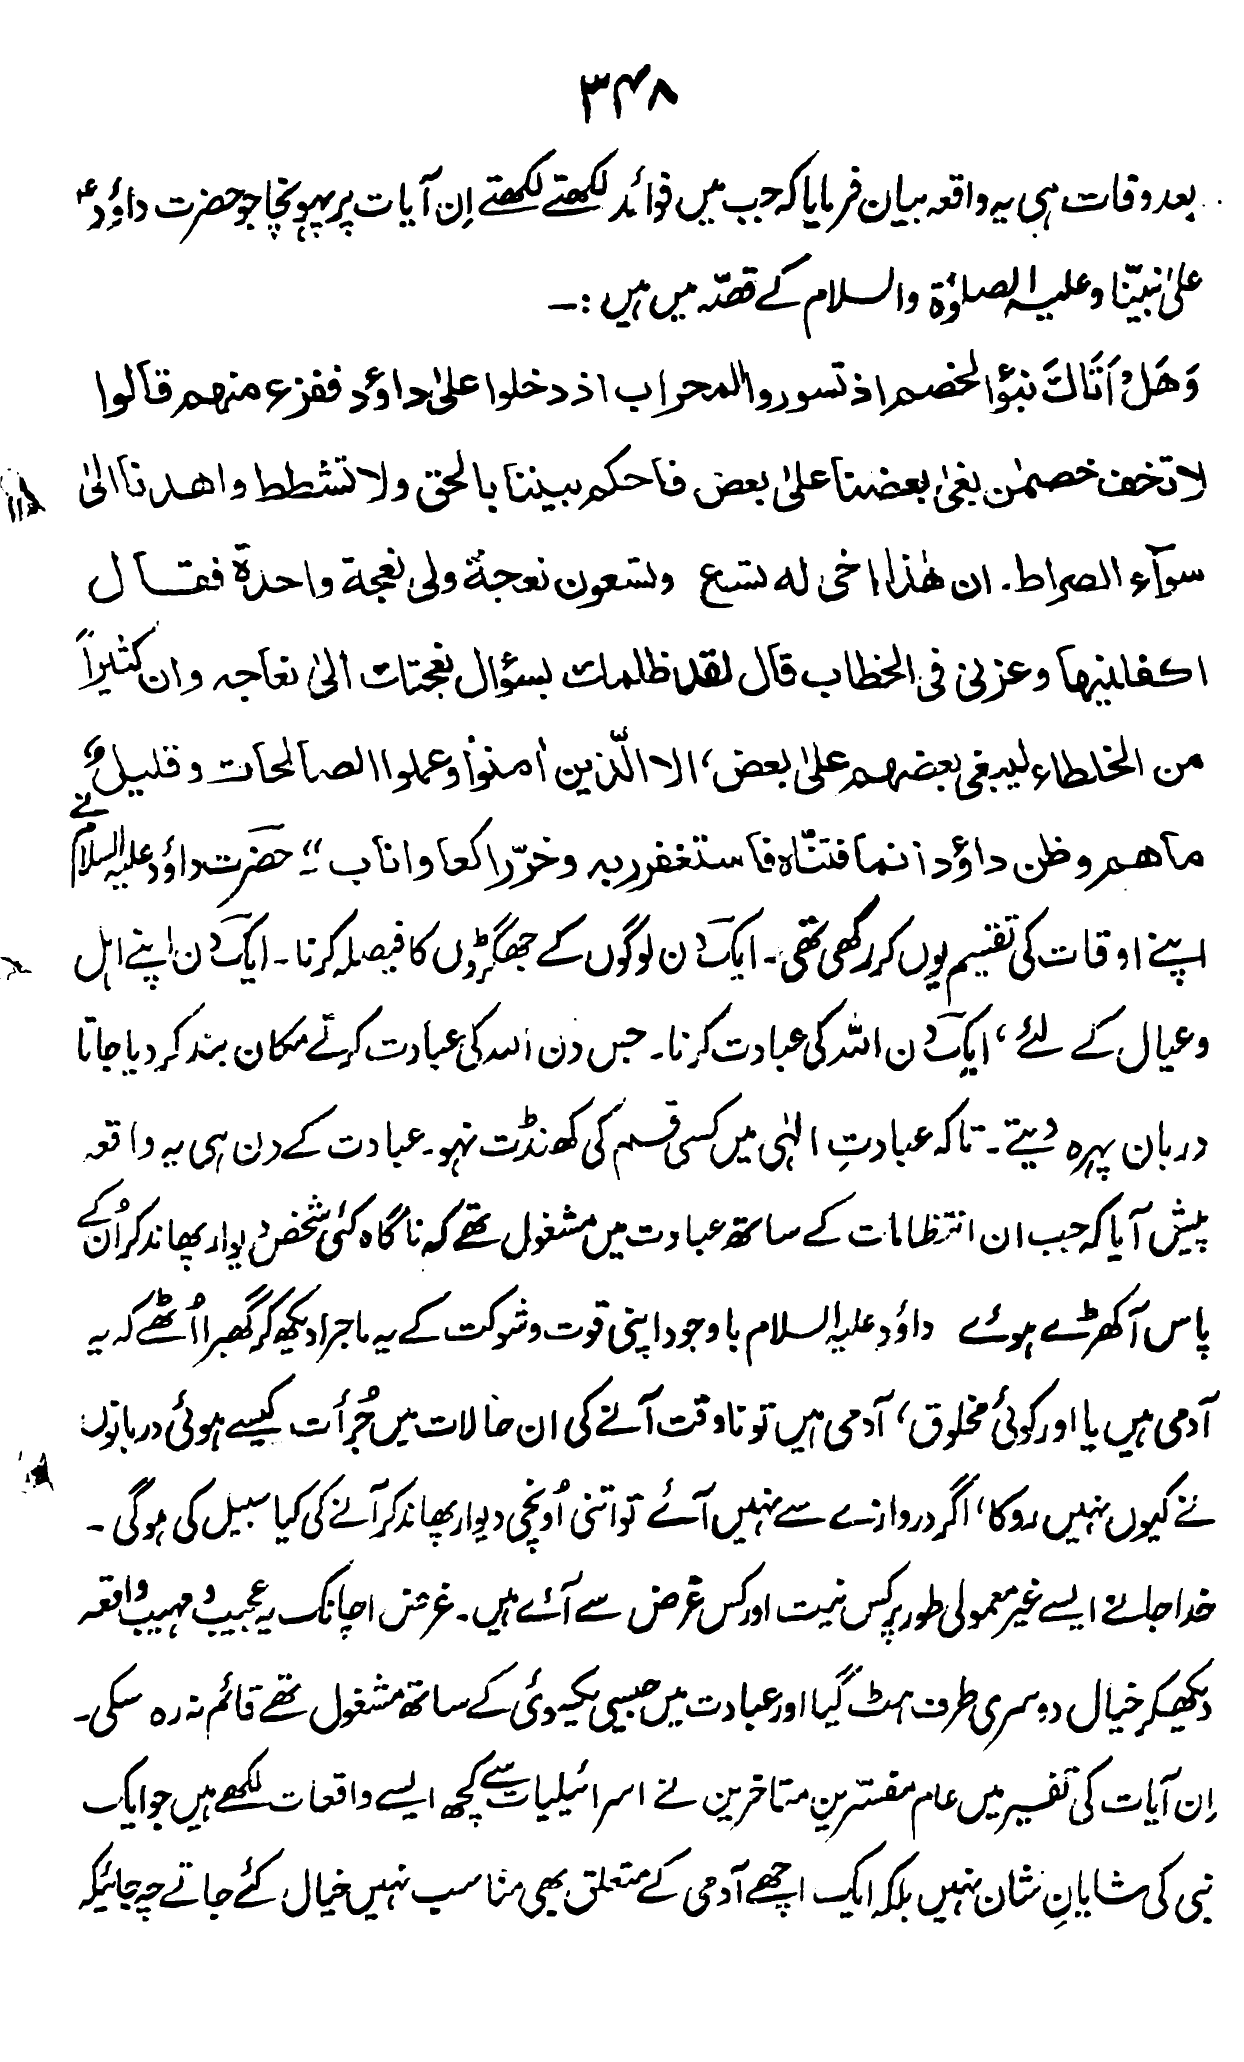 ۳۴۸
بعد وفات ہی یہ واقعہ بیان فرمایا کہ جب میں فوائد لکھتے لکھتے اِن آیات پر پہونچا جو حضرت داؤدؑ
علیٰ نبیّنا و علیہ الصلوٰۃ والسلام کے قصّہ میں ہیں :۔
وَهَلْ اَتَاكَ نبؤا الخصم اذ تسوروا المحراب اذ دخلوا علیٰ داؤد ففزع منهم قالوا
لا تخف خصمٰن بغیٰ بعضنا علیٰ بعض فاحكم بيننا بالحق ولا تشطط واهدنا الیٰ
سوآء الصراط۔ ان هٰذا اخی له تسع وتسعون نعجةٌ ولی نعجة واحدة فقال
اكفلنيها وعزنی فی الخطاب قال لقد ظلمك بسؤال نعجتك الیٰ نعاجه وان كثيراً
من الخلطاء ليبغی بعضهم علیٰ بعض، الا الّذين اٰمنوا وعملوا الصالحات وقليلٌ
ما هم وظن داؤد انما فتنّاه فاستغفر ربه وخرّ راكعا واناب ؛؛ حضرت داؤد علیہ السلام نے
اپنے اوقات کی تقسیم یوں کر رکھی تھی۔ ایک دن لوگوں کے جھگڑوں کا فیصلہ کرنا۔ ایک دن اپنے اہل
و عیال کے لئے، ایک دن اللہ کی عبادت کرنا۔ جس دن اللہ کی عبادت کرتے مکان بند کر دیا جاتا
دربان پہرہ دیتے۔ تاکہ عبادتِ الہٰی میں کسی قسم کی کھنڈت نہو۔ عبادت کے دن ہی یہ واقعہ
پیش آیا کہ جب ان انتظامات کے ساتھ عبادت میں مشغول تھے کہ ناگاہ کئی شخص دیوار پھاند کر اُن کے
پاس آ کھڑے ہوئے داؤد علیہ السلام باوجود اپنی قوت و شوکت کے یہ ماجرا دیکھ کر گھبرا اُٹھے کہ یہ
آدمی ہیں یا اور کوئی مخلوق، آدمی ہیں تو ناوقت آنے کی ان حالات میں جُرأت کیسے ہوئی دربانوں
نے کیوں نہیں روکا، اگر دروازے سے نہیں آئے تو اتنی اُونچی دیوار پھاند کر آنے کی کیا سبیل کی ہو گی ۔
خدا جانے ایسے غیر معمولی طور پر کس نیت اور کس غرض سے آئے ہیں۔ غرض اچانک یہ عجیب و مہیب واقعہ
دیکھ کر خیال دوسری طرف ہٹ گیا اور عبادت میں جیسی یکسوئی کے ساتھ مشغول تھے قائم نہ رہ سکی۔
اِن آیات کی تفسیر میں عام مفسّرین متاخرین نے اسرائیلیات سے کچھ ایسے واقعات لکھے ہیں جو ایک
نبی کی شایانِ شان نہیں بلکہ ایک اچھے آدمی کے متعلق بھی مناسب نہیں خیال کئے جاتے چہ جائیکہ